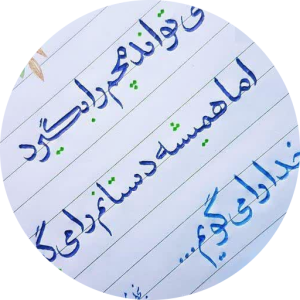 ی تواند مچم را بگیرد
اما همیشه دستانم را می گ
خدا را می گویم...